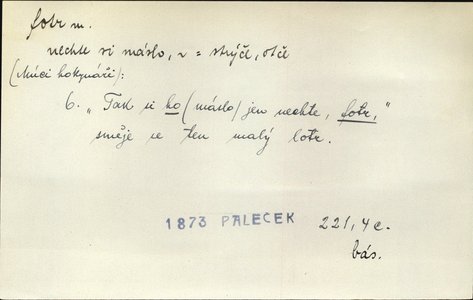 fotr m.
nechte si máslo, v = strýče, otče
(kluci hokynáři):
6. „Tak si ho (máslo) jen nechte, fotr,"
směje se ten malý lotr.
1873 PALEČEK 221, 4 c.
bás.